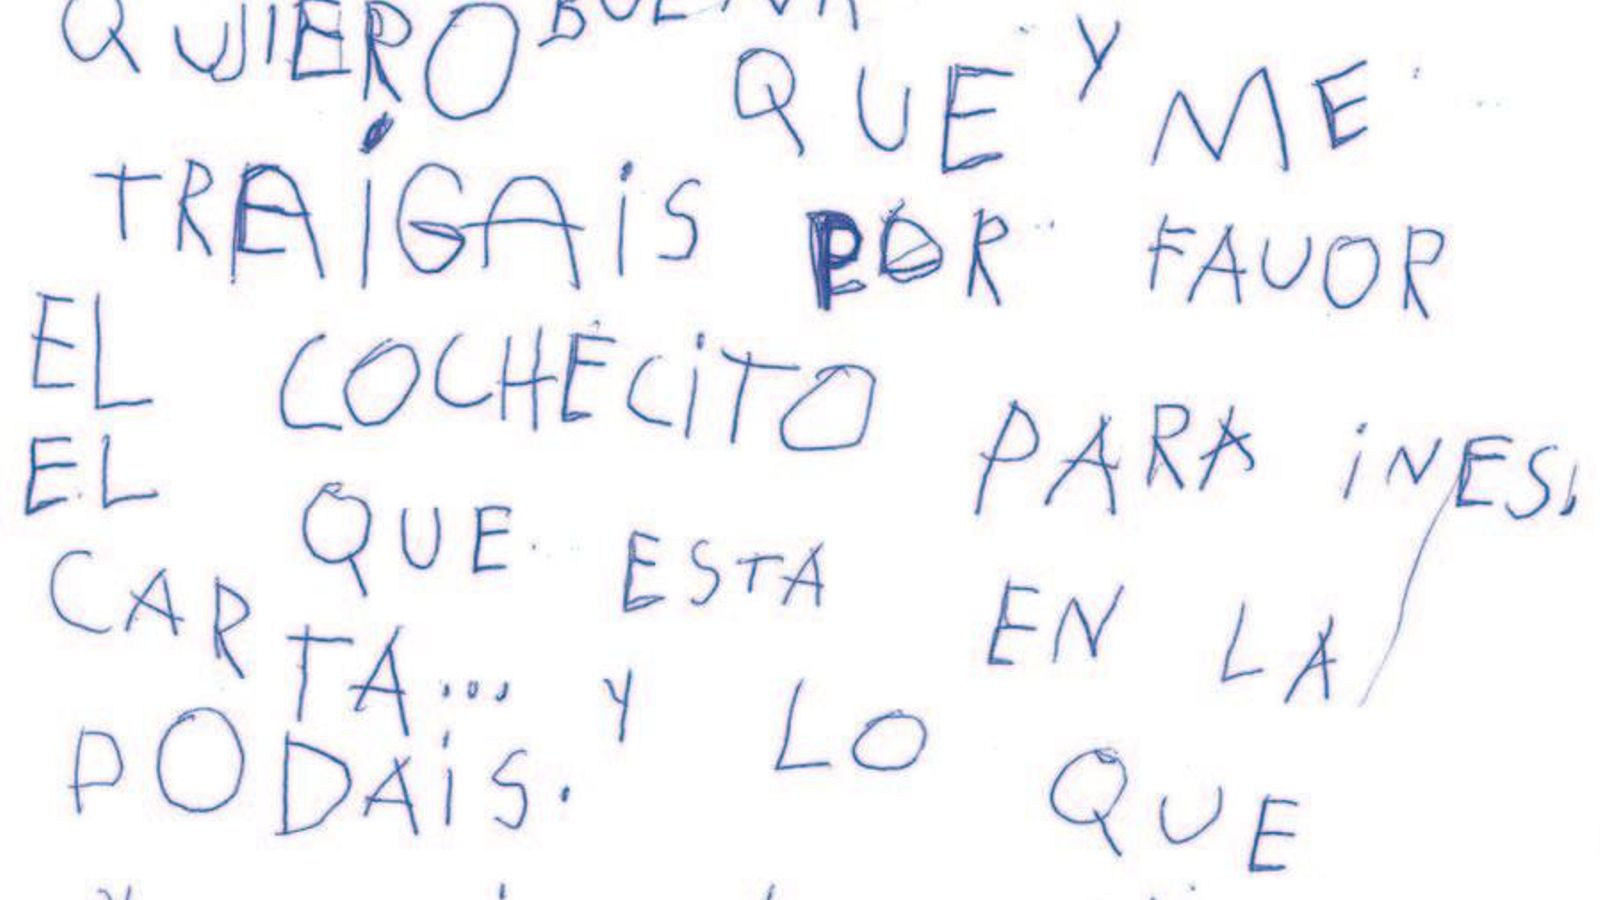 QUIERO QUE ME
TRAIGAIS POR FAVOR
EL COCHECITO PARA iNES,
EL QUE ESTA EN LA
CARTA... Y LO QUE
PODAiS.